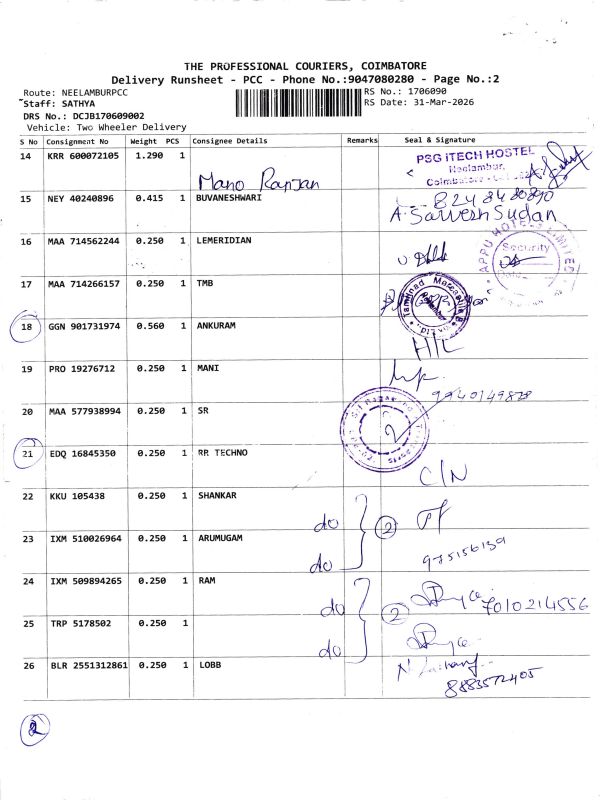 THE PROFESSIONAL COURIERS, COIMBATORE
Delivery Runsheet - PCC - Phone No.:9047080280 - Page No.:2
Route: NEELAMBURPCC
Staff: SATHYA
DRS No.: DCJB170609002
Vehicle: Two Wheeler Delivery
RS No.: 1706090
RS Date: 31-Mar-2026
S No Consignment No Weight PCS Consignee Details Remarks Seal & Signature
14 KRR 600072105 1.290 1
Mano Ranjan
PSG iTECH HOSTEL
Neelambur,
15 NEY 40240896 0.415 1 BUVANESHWARI
A. Sarvesh Sudan
16 MAA 714562244 0.250 1 LEMERIDIAN
APPU HOTELS LIMITED
Security
17 MAA 714266157 0.250 1 TMB
18 GGN 901731974 0.560 1 ANKURAM H/L
19 PRO 19276712 0.250 1 MANI
20 MAA 577938994 0.250 1 SR
21 EDQ 16845350 0.250 1 RR TECHNO C/N
22 KKU 105438 0.250 1 SHANKAR
do 2
23 IXM 510026964 0.250 1 ARUMUGAM
do
24 IXM 509894265 0.250 1 RAM
do 2 7010214556
25 TRP 5178502 0.250 1
do
26 BLR 2551312861 0.250 1 LOBB
8883572405
2